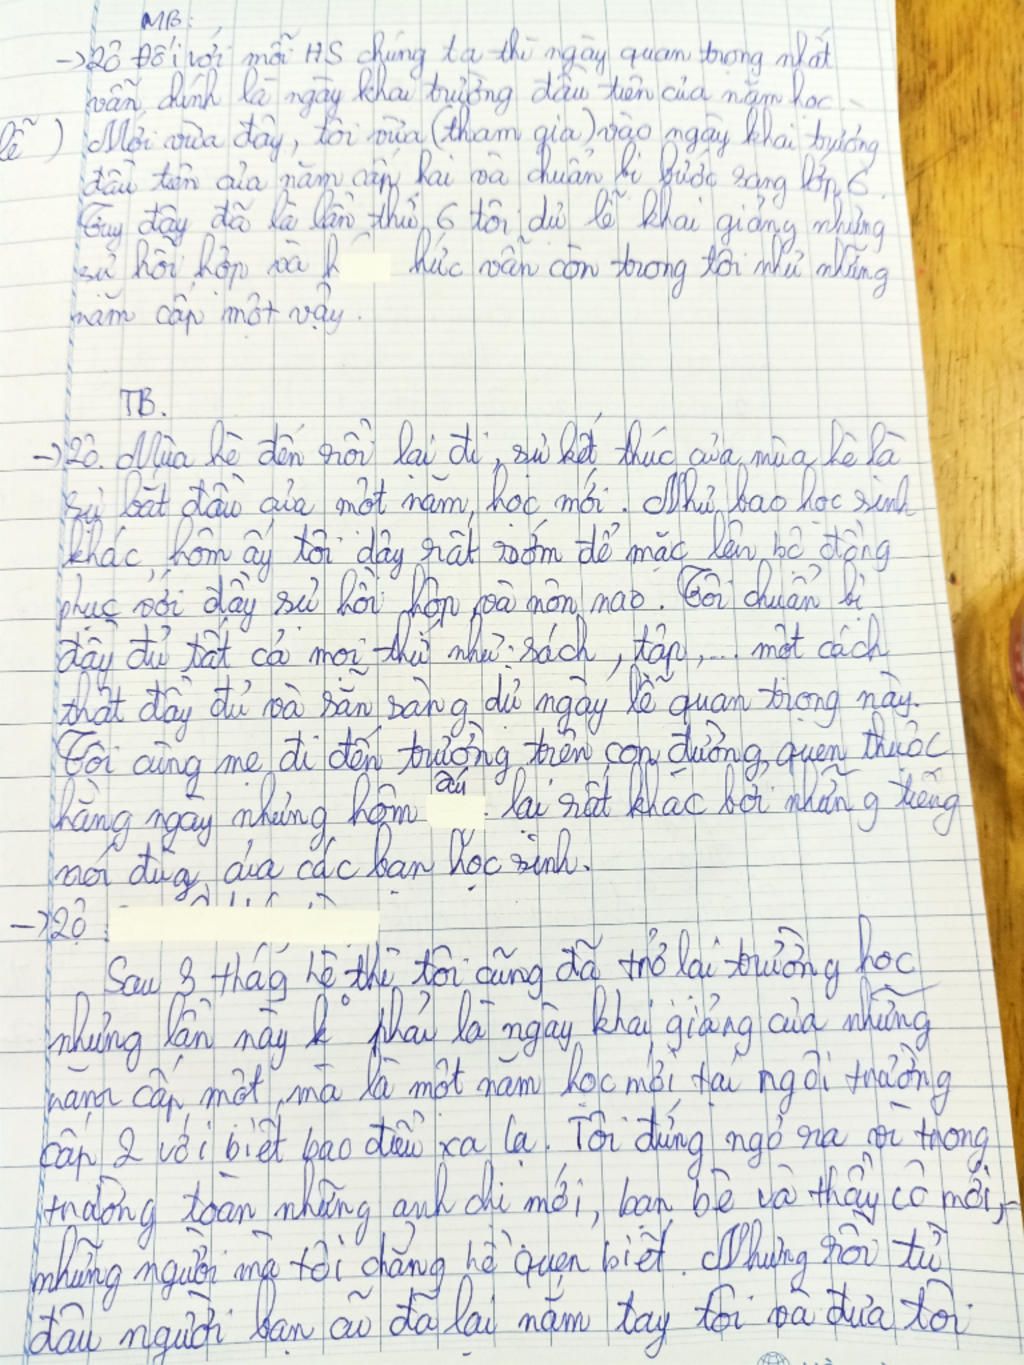 MB:
→20 Đối với mỗi HS chúng ta thì ngày quan trọng nhất
vẫn chính là ngày khai trường đầu tiên của năm học.
lễ ) Mới vừa đây, tôi vừa (tham gia) vào ngày khai trường
đầu tiên của năm cấp hai và chuẩn bị bước sang lớp 6.
Tuy đây đã là lần thứ 6 tôi dự lễ khai giảng nhưng
sự hồi hộp và h hức vẫn còn trong tôi như những
năm cấp một vậy.
TB.
→20. Mùa hè đến rồi lại đi, sự kết thúc của mùa hè là
sự bắt đầu của một năm học mới. Như bao học sinh
khác, hôm ấy tôi dậy rất sớm để mặc lên bộ đồng
phục với đầy sự hồi hộp và nôn nao. Tôi chuẩn bị
đầy đủ tất cả mọi thứ như: sách, tập,... một cách
thật đầy đủ và sẵn sàng dự ngày lễ quan trọng này.
Tôi cùng mẹ đi đến trường trên con đường quen thuộc
hằng ngày nhưng hôm ấy lại rất khác bởi những tiếng
nói của các bạn học sinh.
→20
Sau 3 thág hè thì tôi cũng đã trở lại trường học
nhưng lần này k° phải là ngày khai giảng của những
năm cấp một, mà là một năm học mới tại ngôi trường
cấp 2 với biết bao điều xa lạ. Tôi đứng ngó ra vì trong
trường toàn những anh chị mới, bạn bè và thầy cô mới,
những người mà tôi chẳng hề quen biết. Nhưng rồi từ
đâu người bạn cũ đã lại nắm tay tôi và đưa tôi